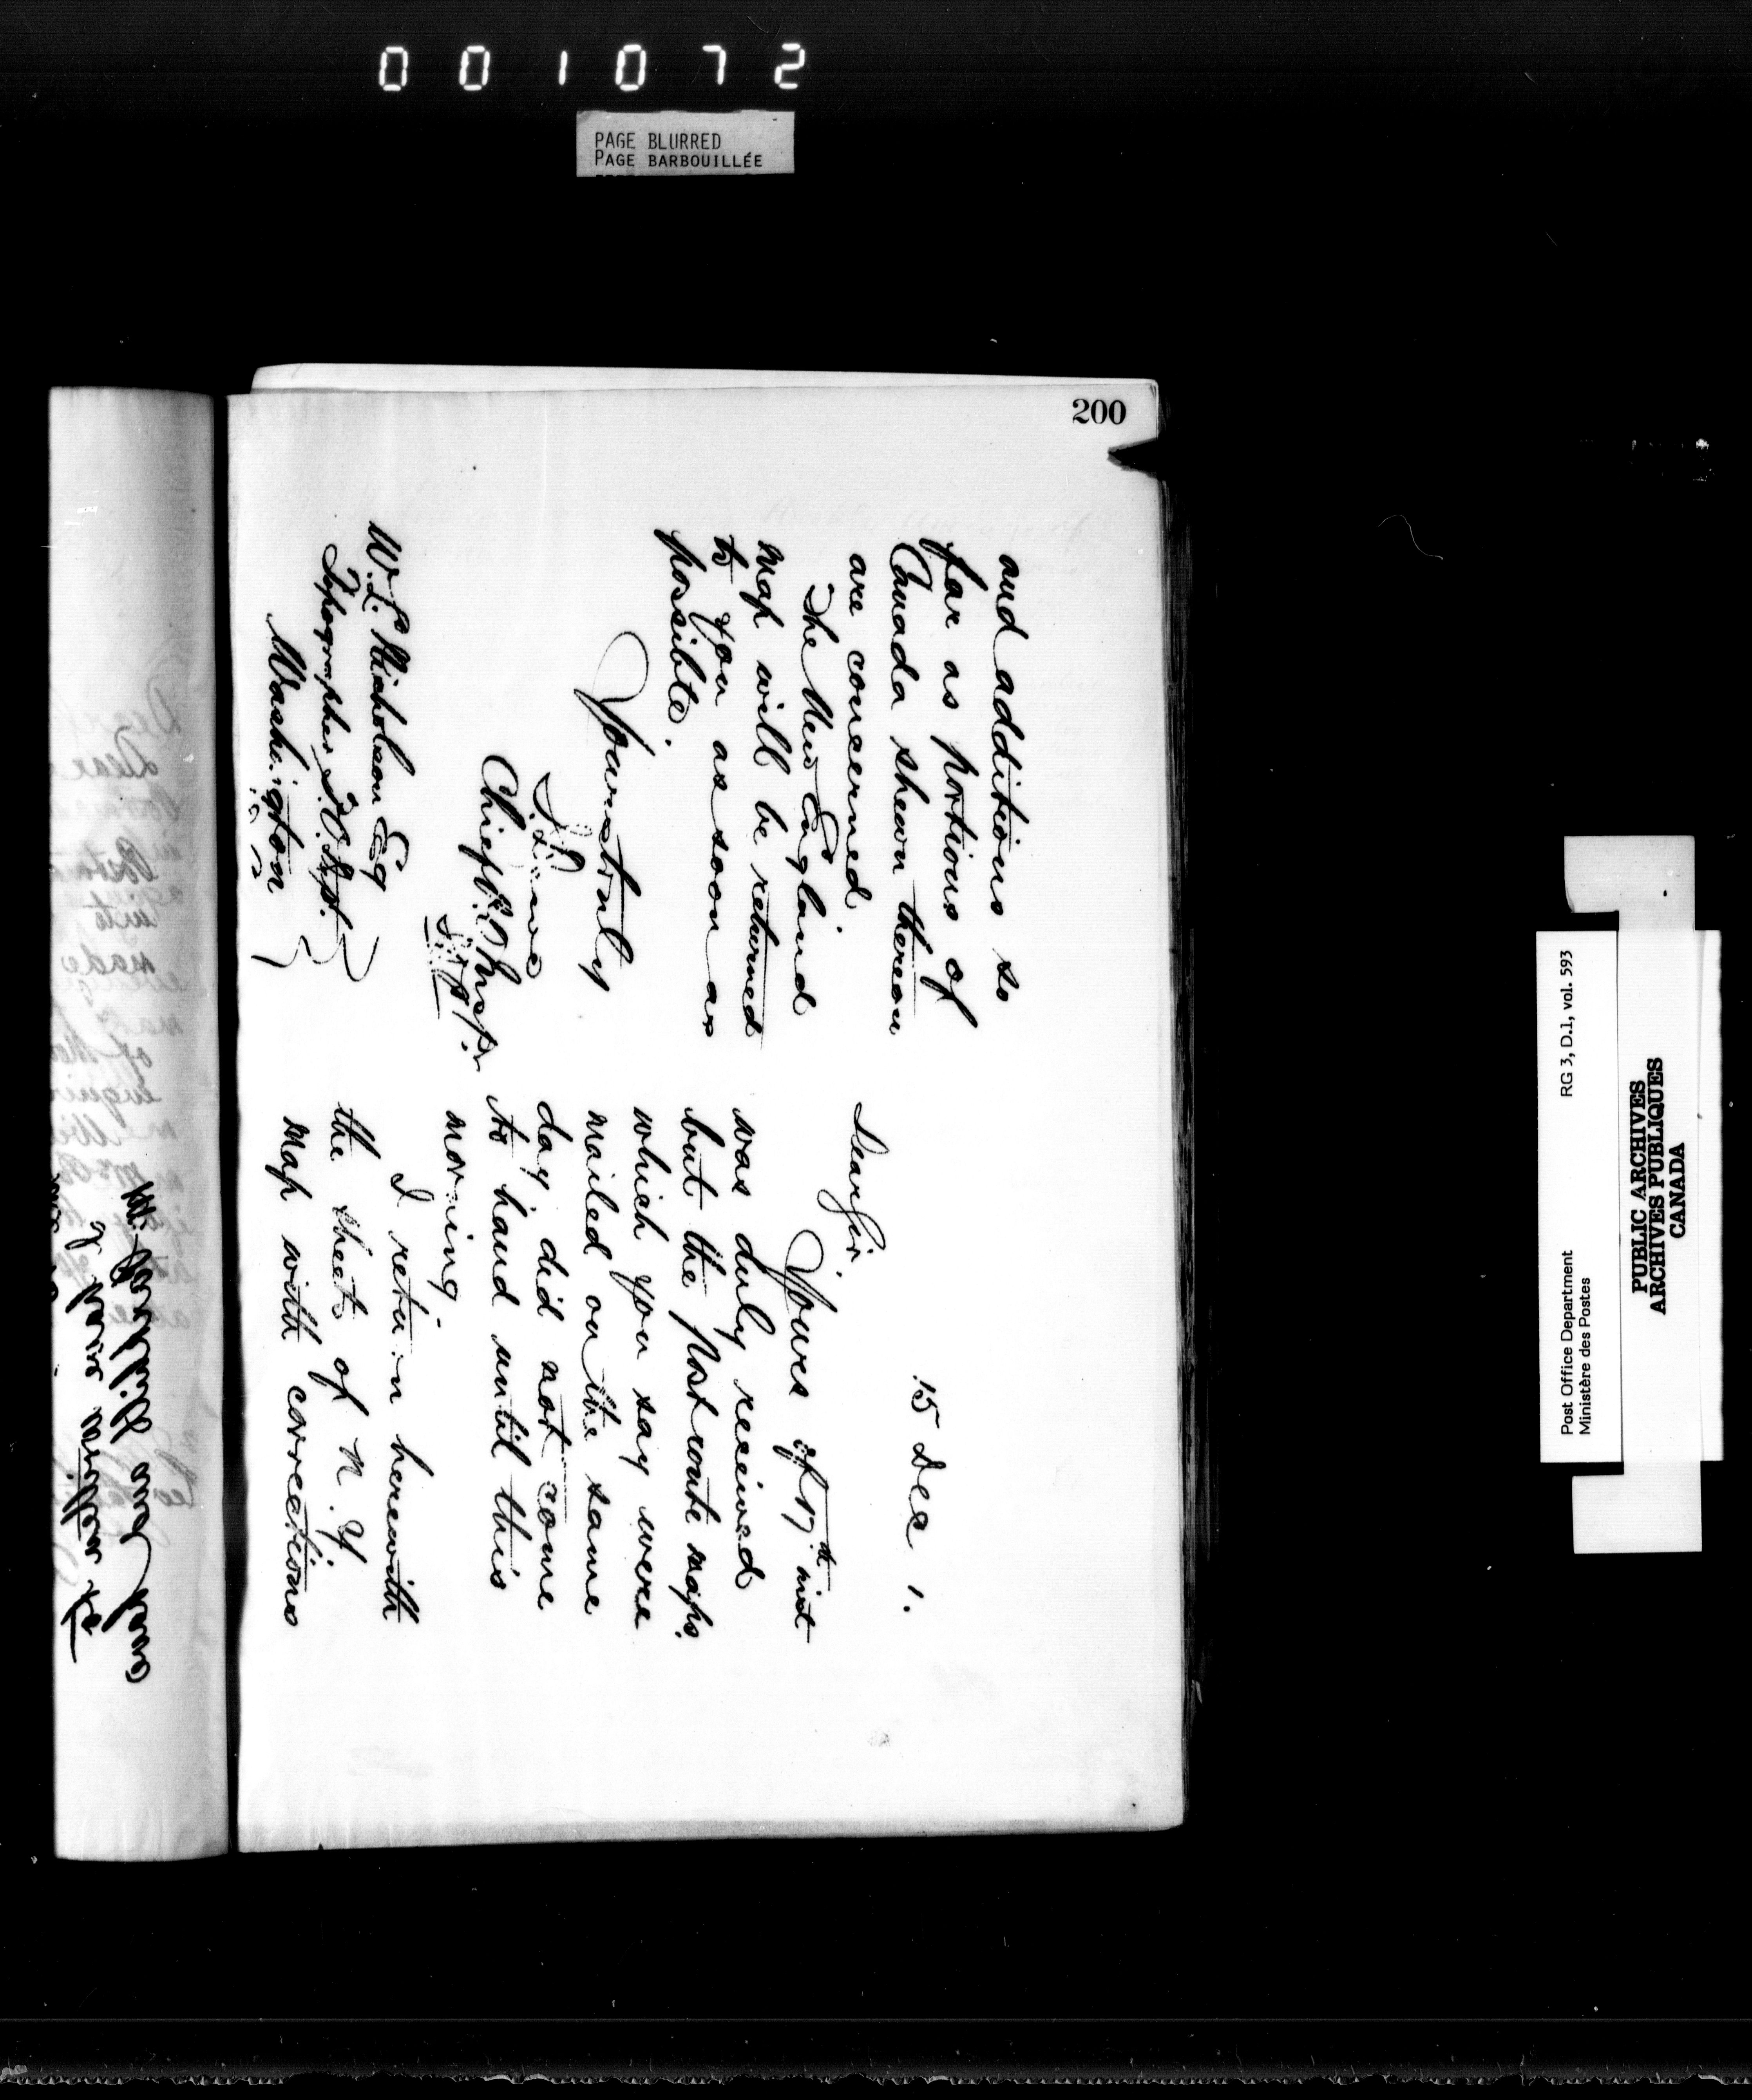 001072
PAGE BLURRED
PAGE BARBOUILLÉE
200
15 Dec 1.
Dear Sir.
Yours of 17th inst
was duly received
but the post route maps.
which you say were
mailed on the same
day did not come
to hand until this
morning.
I return herewith
the sheet of N. Y
map with corrections
and additions so
far as portions of
Canada shewn thereon
are concerned.
The New England
map will be returned
to you as soon as
possible.
Yours truly
Chief P.O. Inspr
W. L. Nicholson Esq
Topographer P.O. Dept.
Washington
and have
I have written to
Post Office Department
Ministère des Postes
RG 3, D.1, vol. 593
PUBLIC ARCHIVES
ARCHIVES PUBLIQUES
CANADA